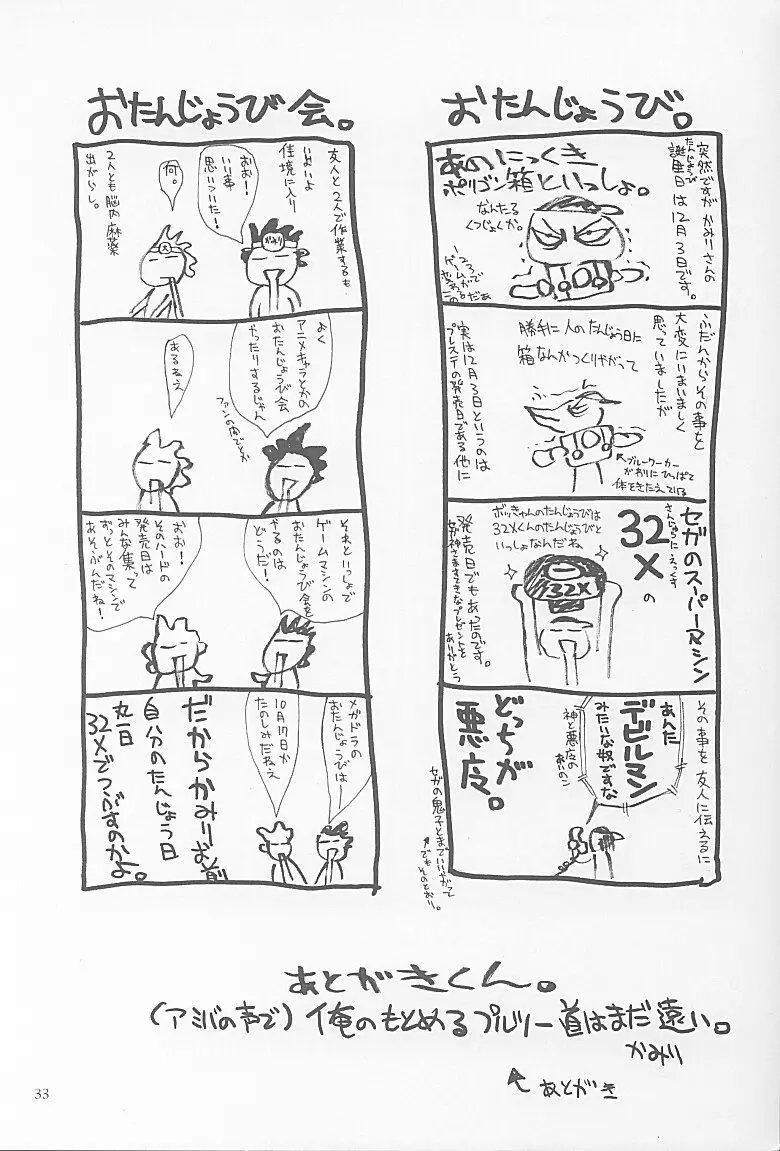 おたんじょうび。
突然ですが かみりさんの
誕生日は12月3日です。
たんじょうび
あのにっくき
ポリゴン箱といっしょ。
なんたる
くつじょくか。
ふだんからその事を
大変にいまいましく
思っていましたが
勝手に人のたんじょう日に
箱なんかつくりやがって
↖ブルーワーカー
がわりにひっぱって
体をきたえている
実は12月3日というのは
プレステの発売日である他に
セガのスーパーマシン
32X の
さんじゅうにえっくす
ボッきゃんのたんじょうびは
32Xくんのたんじょうびと
いっしょなんだね
32X
発売日でもあったのです。
女神さますてきなプレゼントを
ありがとう
その事を友人に伝えるに
あんた
デビルマン
みたいな奴ですな
神と悪魔の
あいのこ
どっちが
悪魔。
セガの鬼子とまでいいやがって
↑でもそのとおり。
おたんじょうび会。
友人と2人で作業するも
いよいよ
佳境に入り
おお!
いい事
思いついた!
かみり
何。
2人とも脳内麻薬
出がらし。
よく
アニメキャラとかの
おたんじょうび会
やったりするじゃん
ファンの間でとか
あるねえ
それといっしょで
ゲームマシンの
おたんじょうび会を
やるのは
どうだ!
おお!
そのハードの
発売日は
みんな集って
ずっとそのマシンで
あそぶんだね!
メガドラの
おたんじょうびは
10月29日が
たのしみだねえ
だからかみりお前
自分のたんじょう日
丸一日
32Xでつぶすのかよ。
あとがきくん。
(アミバの声で)俺のもとめるプルツー道はまだ遠い。
かみり
↖ あとがき
33